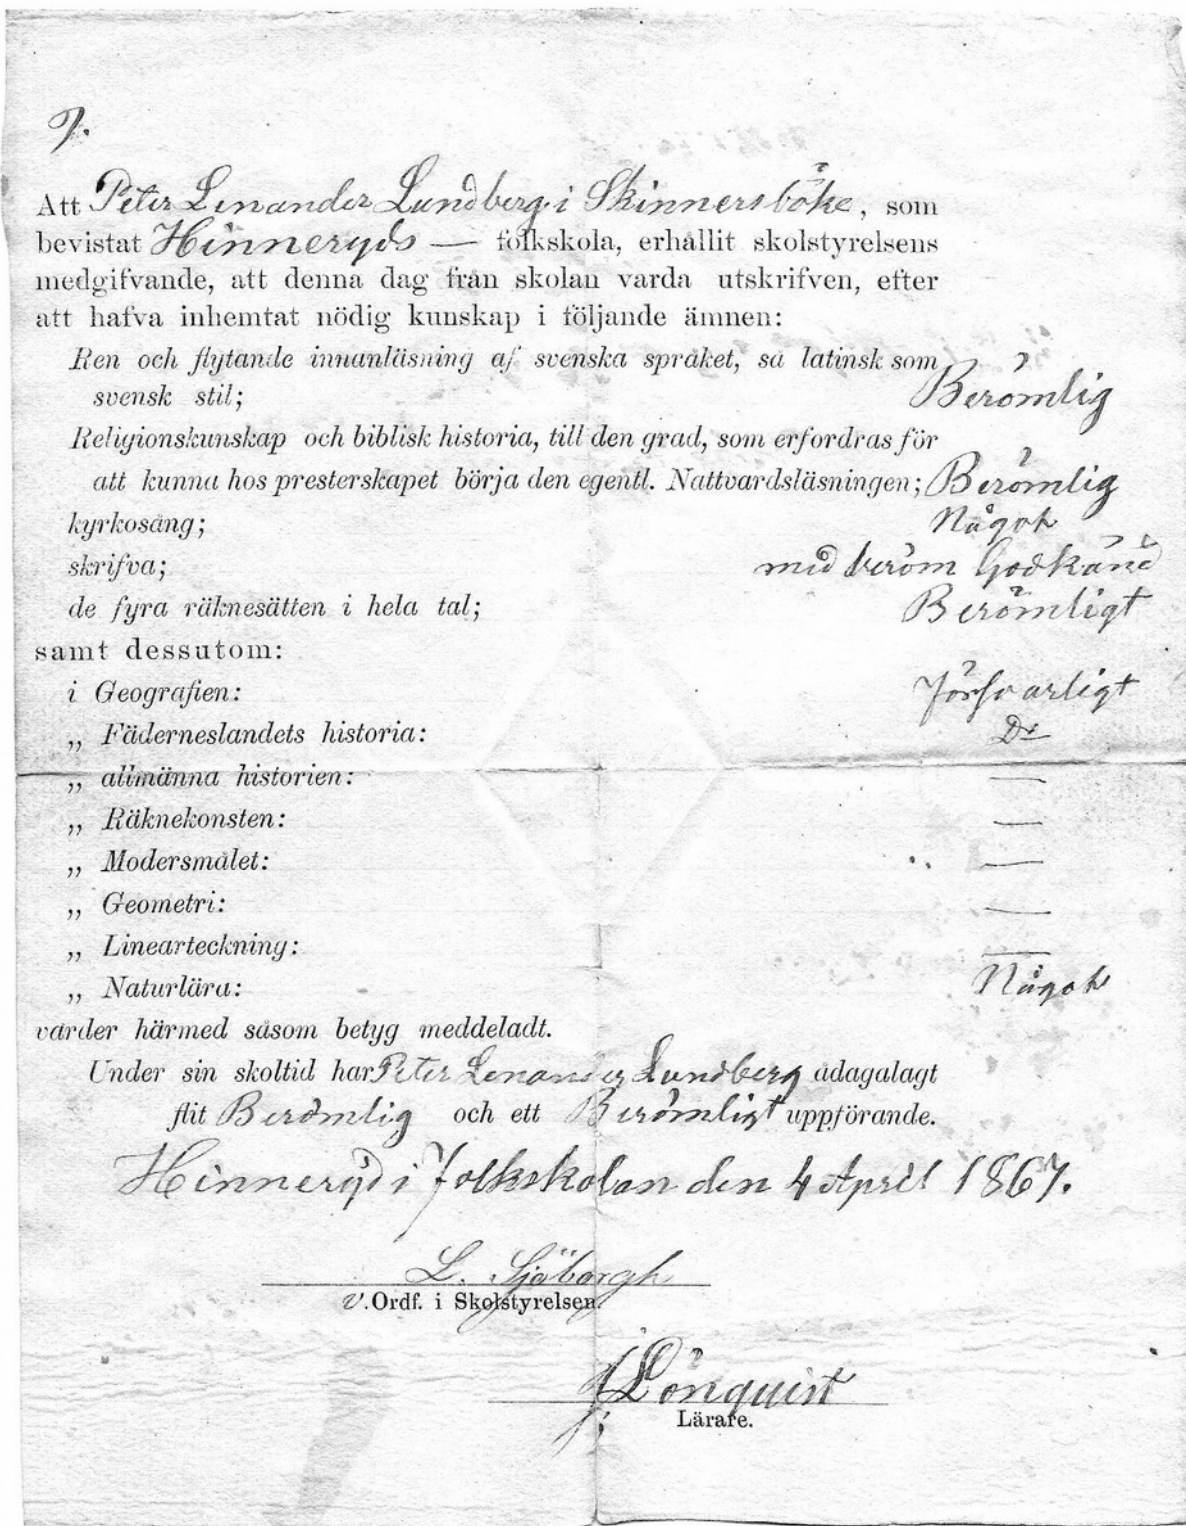 Att Peter Lenander Lundberg i Skinnersböke, som
bevistat Hinneryds — folkskola, erhållit skolstyrelsens
medgifvande, att denna dag från skolan varda utskrifven, efter
att hafva inhemtat nödig kunskap i följande ämnen:
Ren och flytande innanläsning af svenska språket, så latinsk som
svensk stil; Berömlig
Religionskunskap och biblisk historia, till den grad, som erfordras för
att kunna hos presterskapet börja den egentl. Nattvardsläsningen; Berömlig
kyrkosång; Något
skrifva; med beröm Godkänd
de fyra räknesätten i hela tal; Berömligt
samt dessutom:
i Geografien: Försvarligt
„ Fäderneslandets historia: Do
„ allmänna historien: —
„ Räknekonsten: —
„ Modersmålet: —
„ Geometri: —
„ Linearteckning: —
„ Naturlära: Något
varder härmed såsom betyg meddeladt.
Under sin skoltid har Peter Lenander Lundberg ådagalagt
flit Berömlig och ett Berömligt uppförande.
Hinneryd i Folkskolan den 4 April 1867.
L. Sjöborgh
V. Ordf. i Skolstyrelsen.
Lönquist
Lärare.